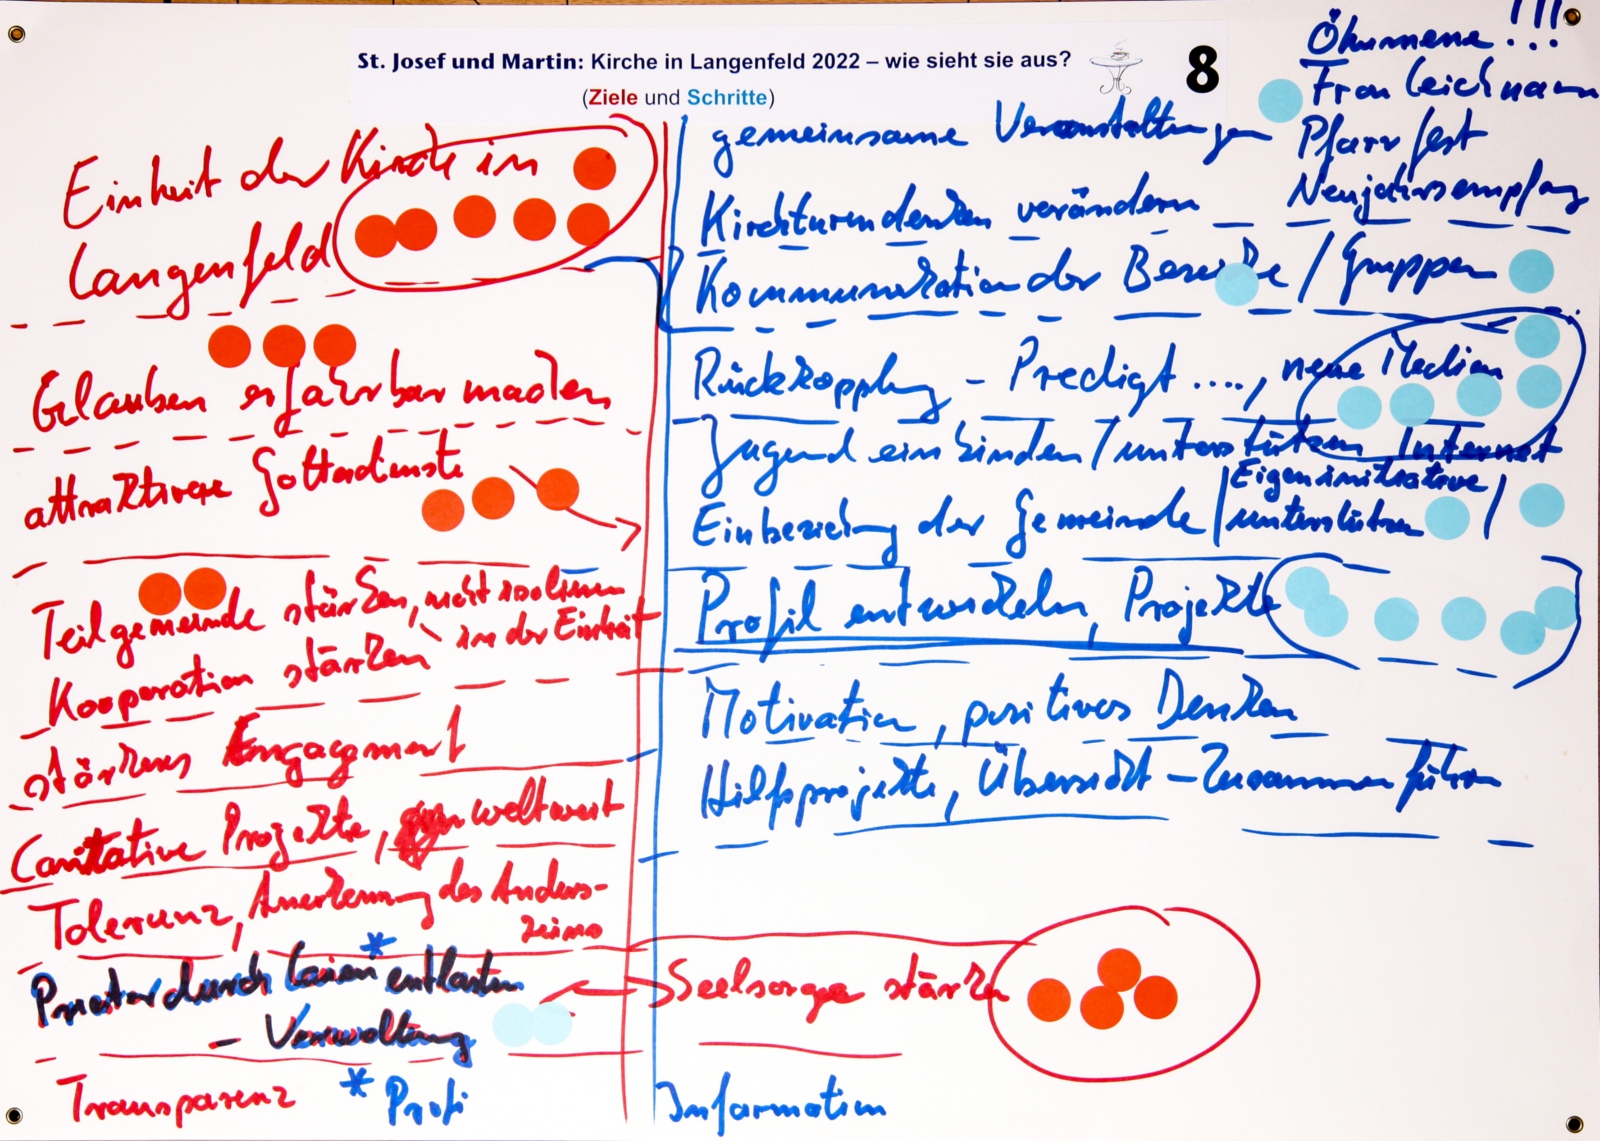 St. Josef und Martin: Kirche in Langenfeld 2022 – wie sieht sie aus?
(Ziele und Schritte)
8
Einheit der Kirche in
Langenfeld
Glauben erfahrbar machen
attraktivere Gottesdienste
Teilgemeinde stärken, nicht isolieren
in der Einheit
Kooperation stärken
stärkeres Engagement
Caritative Projekte, weltweit
Toleranz, Anerkennung des Anders-
seins
Priester durch Laien* entlasten
– Verwaltung
Transparenz * Profi
Ökumene !!!
Fronleichnam
gemeinsame Veranstaltungen Pfarrfest
Neujahrsempfang
Kirchturmdenken verändern
Kommunikation der Bereiche / Gruppen
Rückkopplung – Predigt ...., neue Medien
Jugend einbinden / unterstützen Internet
Einbeziehung der Gemeinde / Eigeninitiative /
unterstützen
Profil entwickeln, Projekte
Motivation, positives Denken
Hilfsprojekte, Übersicht – Zusammenführen
Seelsorge stärken
Information